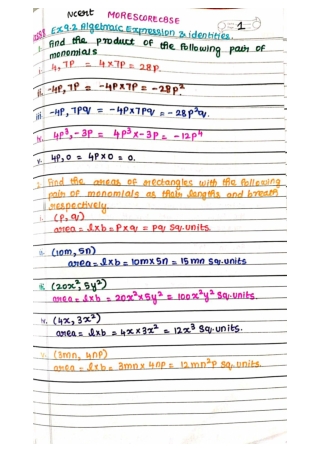 NCERT MORESCORECBSE
1
Ex 9.2 Algebraic Expression & identities.
1. Find the product of the following pair of
monomials
i. 4, 7P = 4×7P = 28P.
ii. -4P, 7P = -4P×7P = -28P²
iii. -4P, 7Pq = -4P×7Pq = -28P²q.
iv. 4P³, -3P = 4P³×-3P = -12P⁴
v. 4P, 0 = 4P×0 = 0.
2. Find the areas of rectangles with the following
pair of monomials as their lengths and breath
respectively.
i. (P, q)
area = l×b = P×q = Pq sq.units.
ii. (10m, 5n)
area = l×b = 10m×5n = 15mn sq.units
iii. (20x² 5y²)
area = l×b = 20x²×5y² = 100x²y² sq.units.
iv. (4x, 3x²)
area = l×b = 4x×3x² = 12x³ sq.units.
v. (3mn, 4nP)
area = l×b = 3mn×4nP = 12mn²P sq.units.